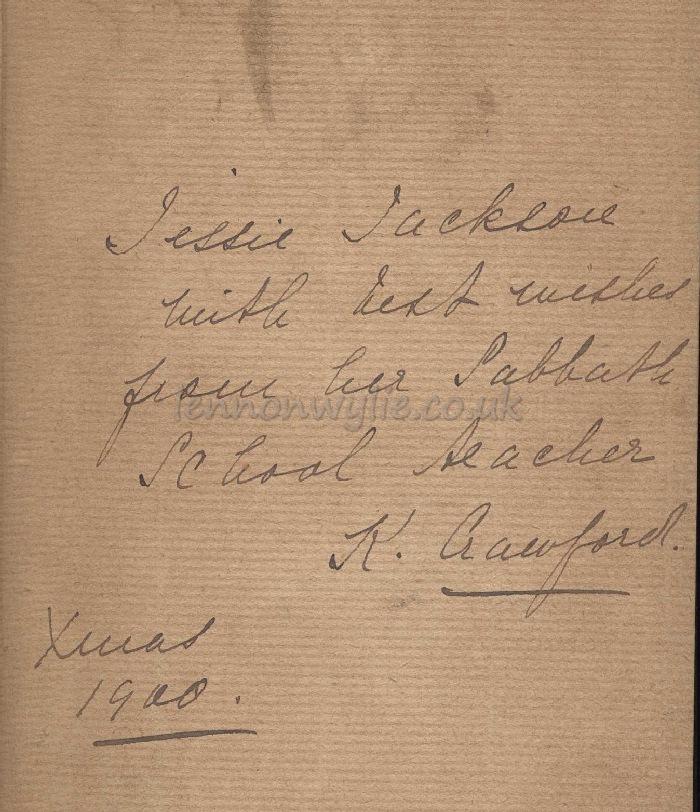 Jessie Jackson
with best wishes
from her Sabbath
lennonwylie.co.uk
School teacher
K. Crawford.
Xmas
1900.